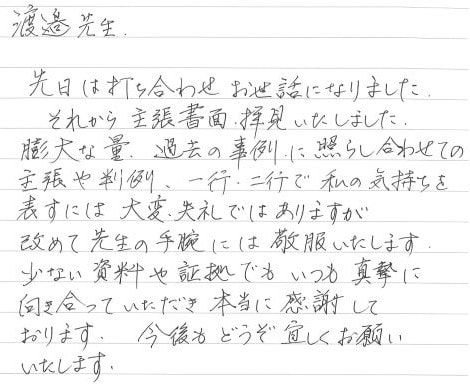 渡邉先生.
先日は打ち合わせお世話になりました.
それから主張書面.拝見いたしました.
膨大な量. 過去の事例.に照らし合わせての
主張や判例、一行・二行で私の気持ちを
表すには大変.失礼ではありますが
改めて先生の手腕には敬服いたします.
少ない資料や証拠でもいつも真摯に
向き合っていただき本当に感謝して
おります. 今後もどうぞ宜しくお願い
いたします.